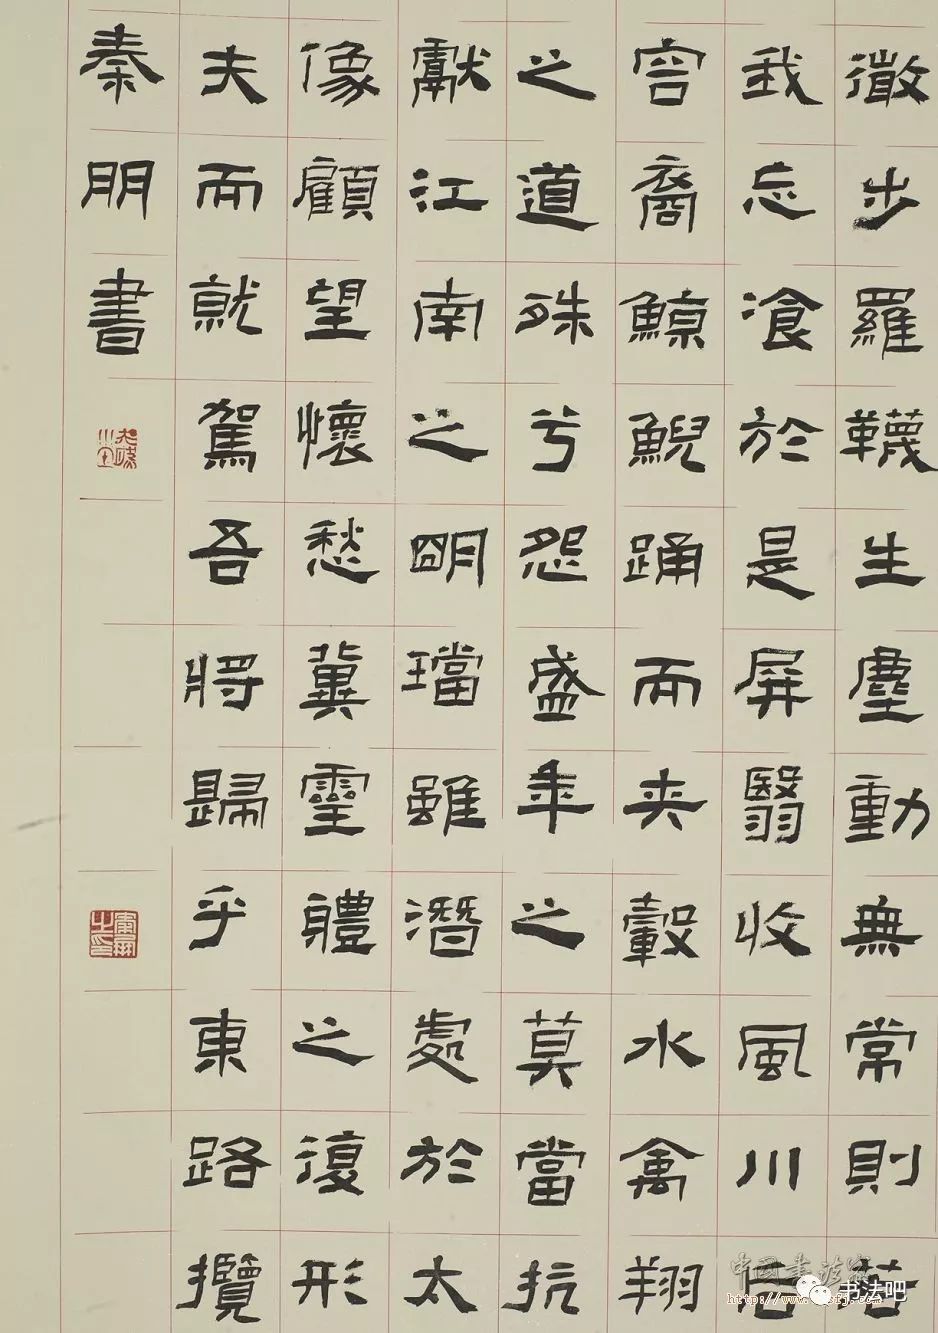 微步羅韈生塵動無常則若
我忘飡於是屏翳收風川后
容裔鯨鯢踊而夾轂水禽翔
之道殊兮怨盛年之莫當抗
獻江南之明璫雖潛處於太
像顧望懷愁冀靈體之復形
夫而就駕吾將歸乎東路攬
秦朋書
书法吧